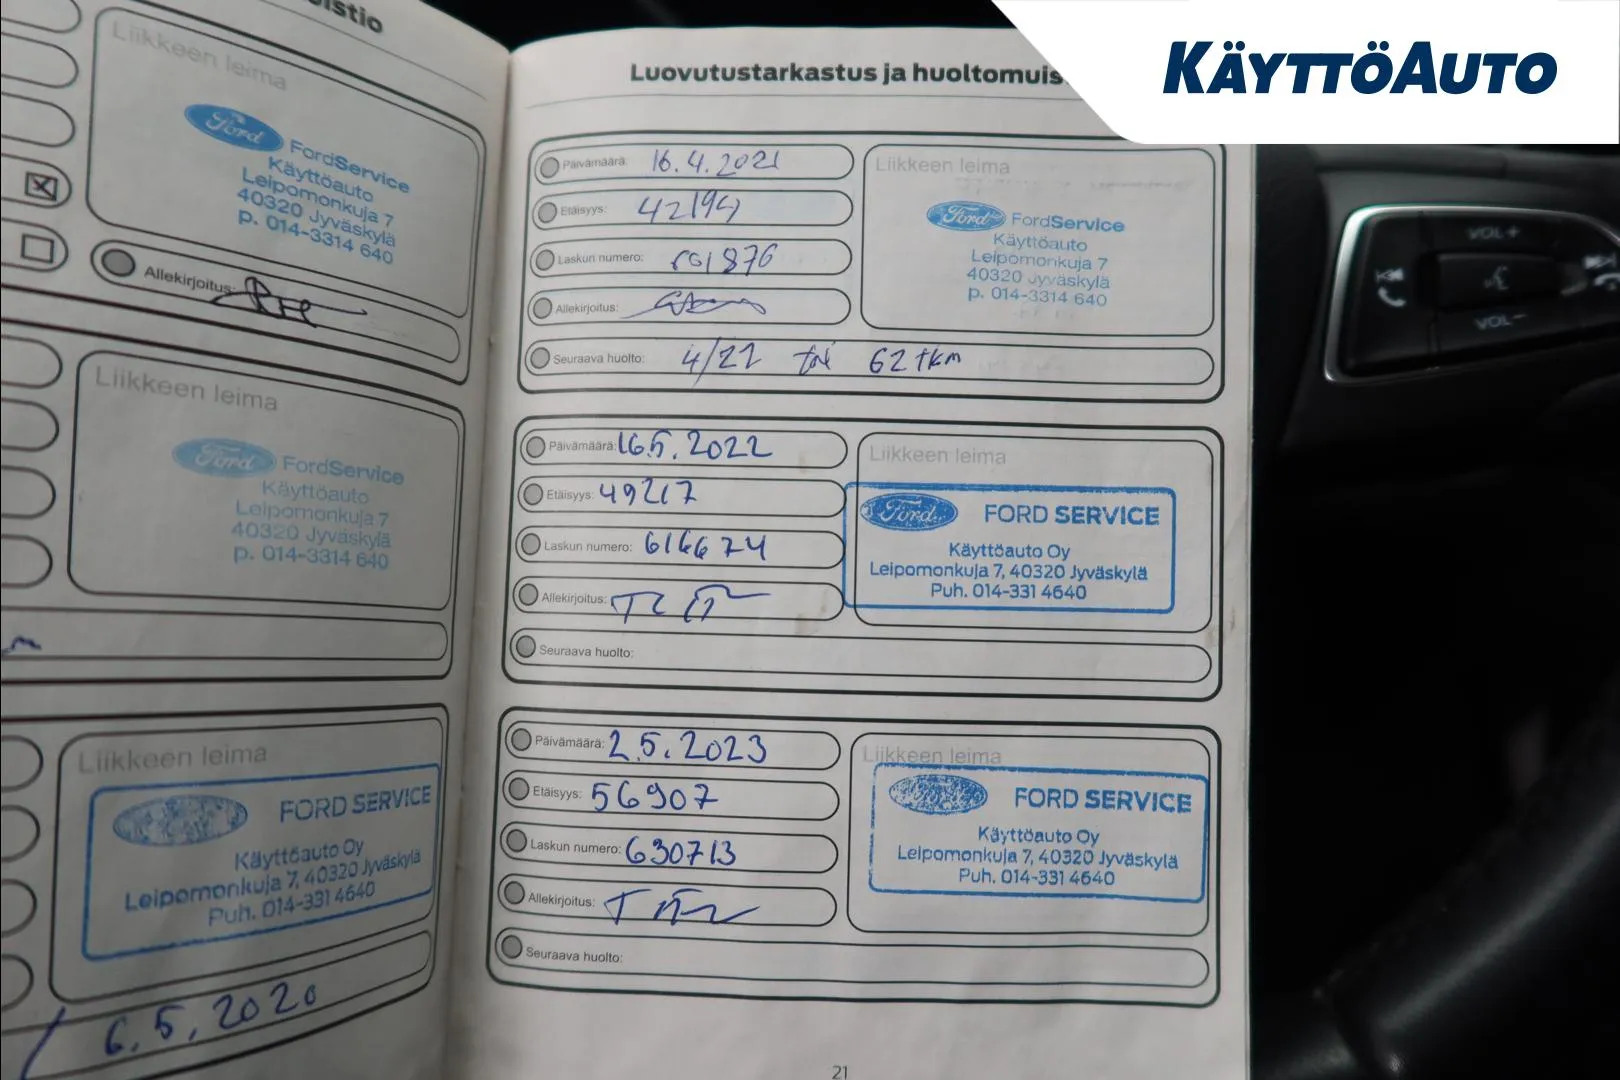 KÄYTTÖAUTO
Liikkeen leima
Ford FordService
Käyttöauto
Leipomonkuja 7
40320 Jyväskylä
p. 014-3314 640
Allekirjoitus:
Liikkeen leima
Ford FordService
Käyttöauto
Leipomonkuja 7
40320 Jyväskylä
p. 014-3314 640
Liikkeen leima
FORD SERVICE
Käyttöauto Oy
Leipomonkuja 7, 40320 Jyväskylä
Puh. 014-331 4640
6.5.2020
Luovutustarkastus ja huoltomuis
Päivämäärä: 16.4.2021
Etäisyys: 42194
Laskun numero:
Allekirjoitus:
Seuraava huolto: 4/22 tai 62 tkm
Liikkeen leima
Ford FordService
Käyttöauto
Leipomonkuja 7
40320 Jyväskylä
p. 014-3314 640
Päivämäärä: 16.5.2022
Etäisyys: 49217
Laskun numero: 616674
Allekirjoitus:
Seuraava huolto:
Liikkeen leima
Ford FORD SERVICE
Käyttöauto Oy
Leipomonkuja 7, 40320 Jyväskylä
Puh. 014-331 4640
Päivämäärä: 2.5.2023
Etäisyys: 56907
Laskun numero: 630713
Allekirjoitus:
Seuraava huolto:
Liikkeen leima
FORD SERVICE
Käyttöauto Oy
Leipomonkuja 7, 40320 Jyväskylä
Puh. 014-331 4640
21
VOL+
VOL-